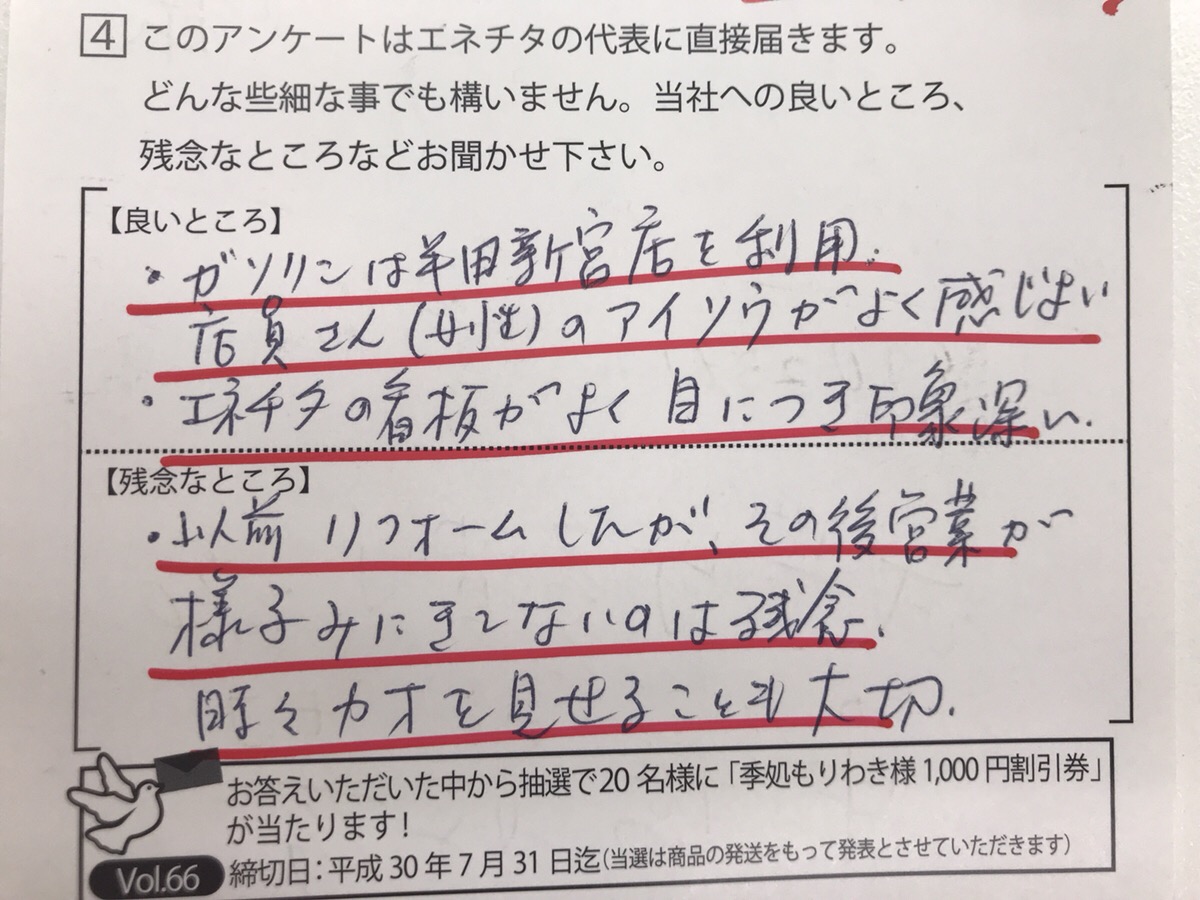 4 このアンケートはエネチタの代表に直接届きます。
どんな些細な事でも構いません。当社への良いところ、
残念なところなどお聞かせ下さい。
【良いところ】
・ガソリンは半田新宮店を利用.
店員さん(女性)のアイソウがよく感じよい
・エネチタの看板がよく目につき印象深い.
【残念なところ】
・以前リフォームしたが、その後営業が
様子みにきてないのは残念.
時々カオを見せることも大切.
お答えいただいた中から抽選で20名様に「季処もりわき様1,000円割引券」
が当たります!
Vol.66 締切日:平成30年7月31日迄(当選は商品の発送をもって発表とさせていただきます)